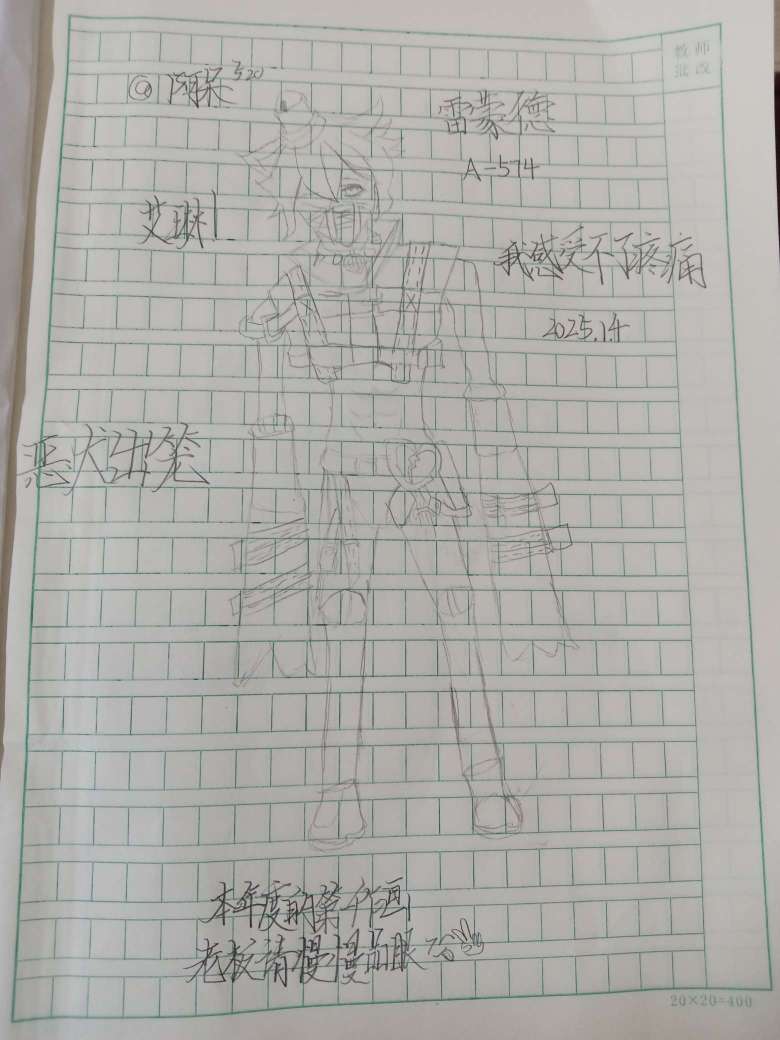 教师
批改
520
雷蒙德
A-574
艾琳
我感受不了疼痛
2025.1.4
恶犬出笼
本年度的第一个作画
老板请慢慢品眼
20×20=400